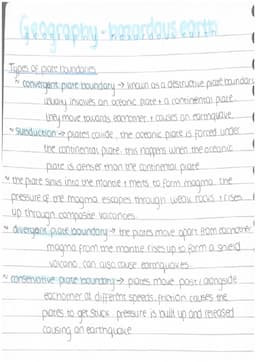 Geography - hazardous earth
Types of plate boundaries
~ convergent plate boundary → known as a destructive plate boundary
usually involves an oceanic plate + a continental plate.
they move towards eachother + causes an earthquake
~ subduction → plates collide, the oceanic plate is forced under
the continental plate. this happens when the oceanic
plate is denser than the continental plate
~ the plate sinks into the mantle + melts to form magma. the
pressure of the magma escapes through weak rocks + rises
up through composite volcanoes.
~ divergent plate boundary → the plates move apart from eachother
magma from the mantle rises up to form a shield
volcano. can also cause earthquakes
~ conservative plate boundary → plates move past / alongside
eachother at different speeds. friction causes the
plates to get stuck. pressure is built up and released
causing an earthquake